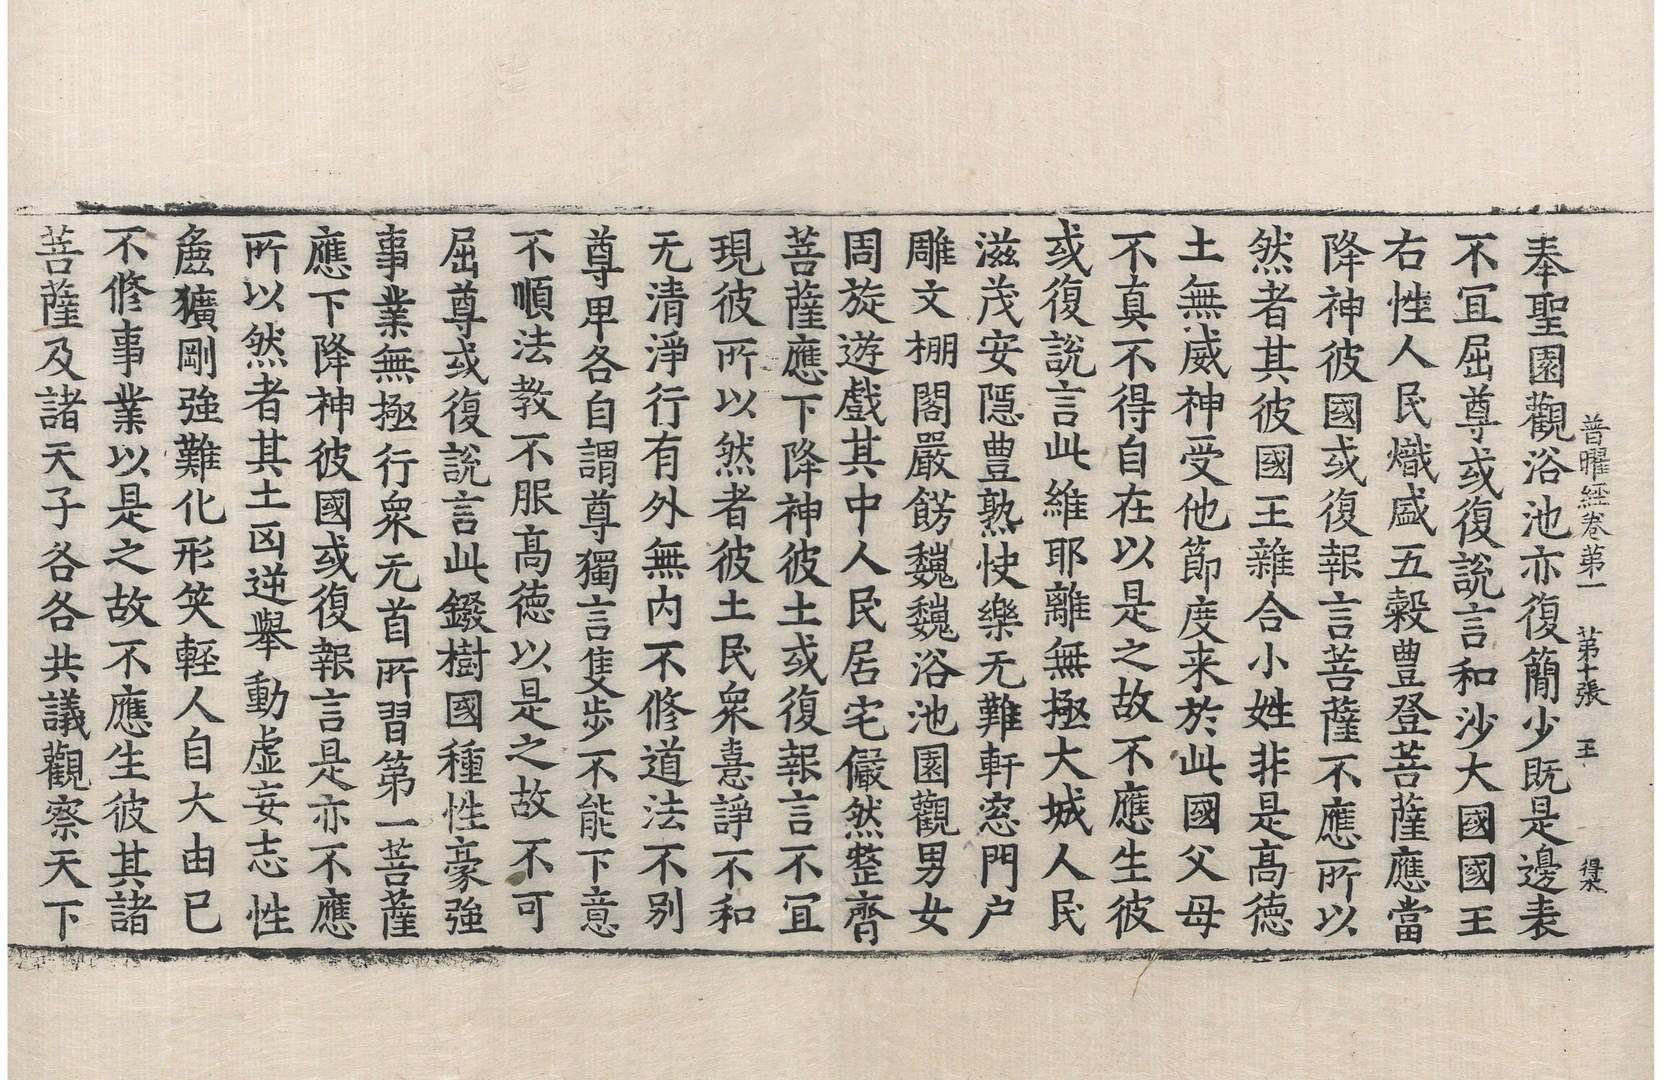 普曜經卷第一　第十張　王　得水
奉聖園觀浴池亦復簡少既是邊表
不宜屈尊或復說言和沙大國國王
右性人民熾盛五穀豊登菩薩應當
降神彼國或復報言菩薩不應所以
然者其彼國王雜合小姓非是高德
土無威神受他節度来於此國父母
不真不得自在以是之故不應生彼
或復說言此維耶離無極大城人民
滋茂安隱豊熟快樂无難軒窓門户
雕文棚閣嚴餝巍巍浴池園觀男女
周旋遊戲其中人民居宅儼然整齊
菩薩應下降神彼土或復報言不宜
現彼所以然者彼土民衆憙諍不和
无清淨行有外無內不修道法不別
尊卑各自謂尊獨言隻步不能下意
不順法教不服高德以是之故不可
屈尊或復說言此鏺樹國種性豪強
事業無極行衆无首所習第一菩薩
應下降神彼國或復報言是亦不應
所以然者其土凶逆舉動虛妄志性
麁獷剛強難化形笑輕人自大由已
不修事業以是之故不應生彼其諸
菩薩及諸天子各各共議觀察天下